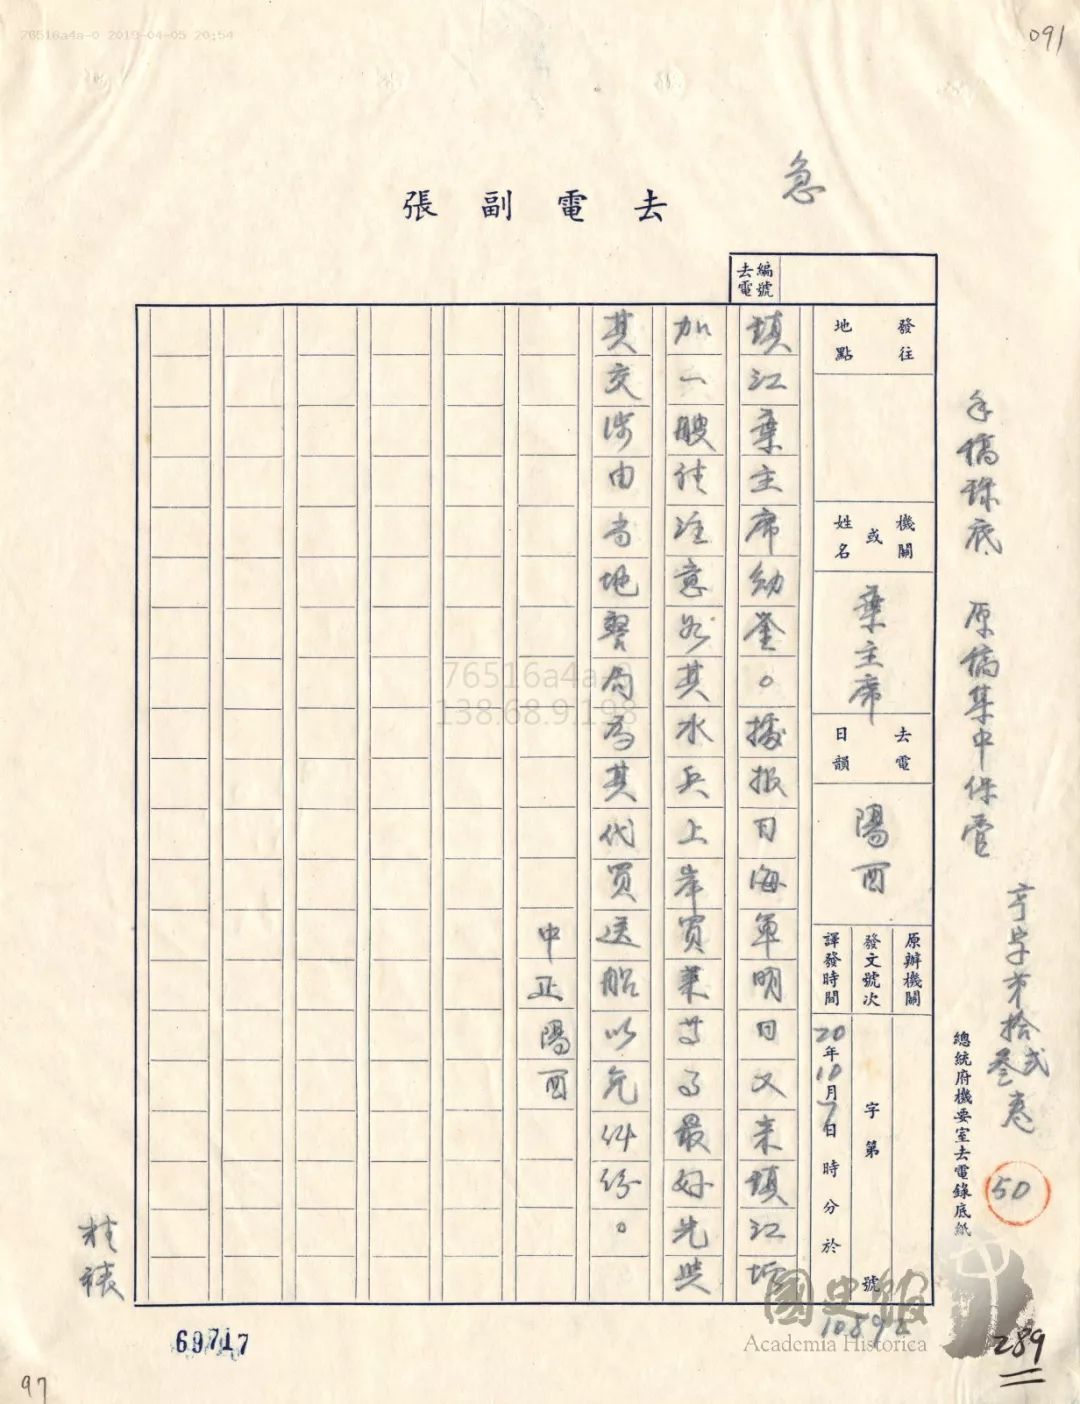 76516a4a-0 2019-04-05 20:54
091
急
去電副張
去電編號
發往地點
機關或姓名
葉主席
去電日韻
陽酉
原辦機關
發文號次
字第
號
譯發時間
20年10月7日時分於
鎮江葉主席勛鑒。據報日海軍明日又來鎮江
加一艘請注意能其水兵上岸買菜等事最好先與
其交涉由當地警局為其代買送船以免糾紛。
中正陽酉
手稿錄底 原稿集中保管
亨字第拾弍卷
50
總統府機要室去電錄底紙
76516a4a-0
138.68.9.198
國史館
Academia Historica
289
69717
97